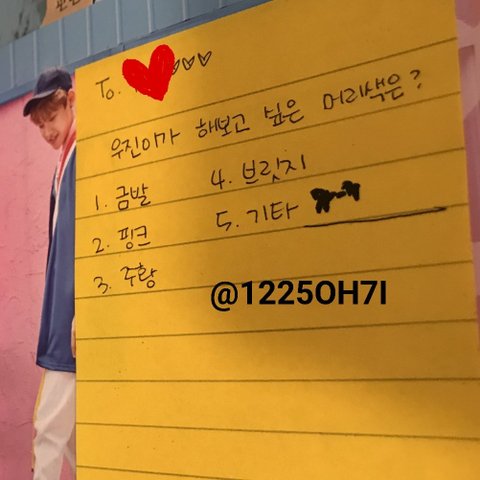 To.
우진이가 해보고 싶은 머리색은?
1. 금발
2. 핑크
3. 주황
4. 브릿지
5. 기타
@1225OH7I